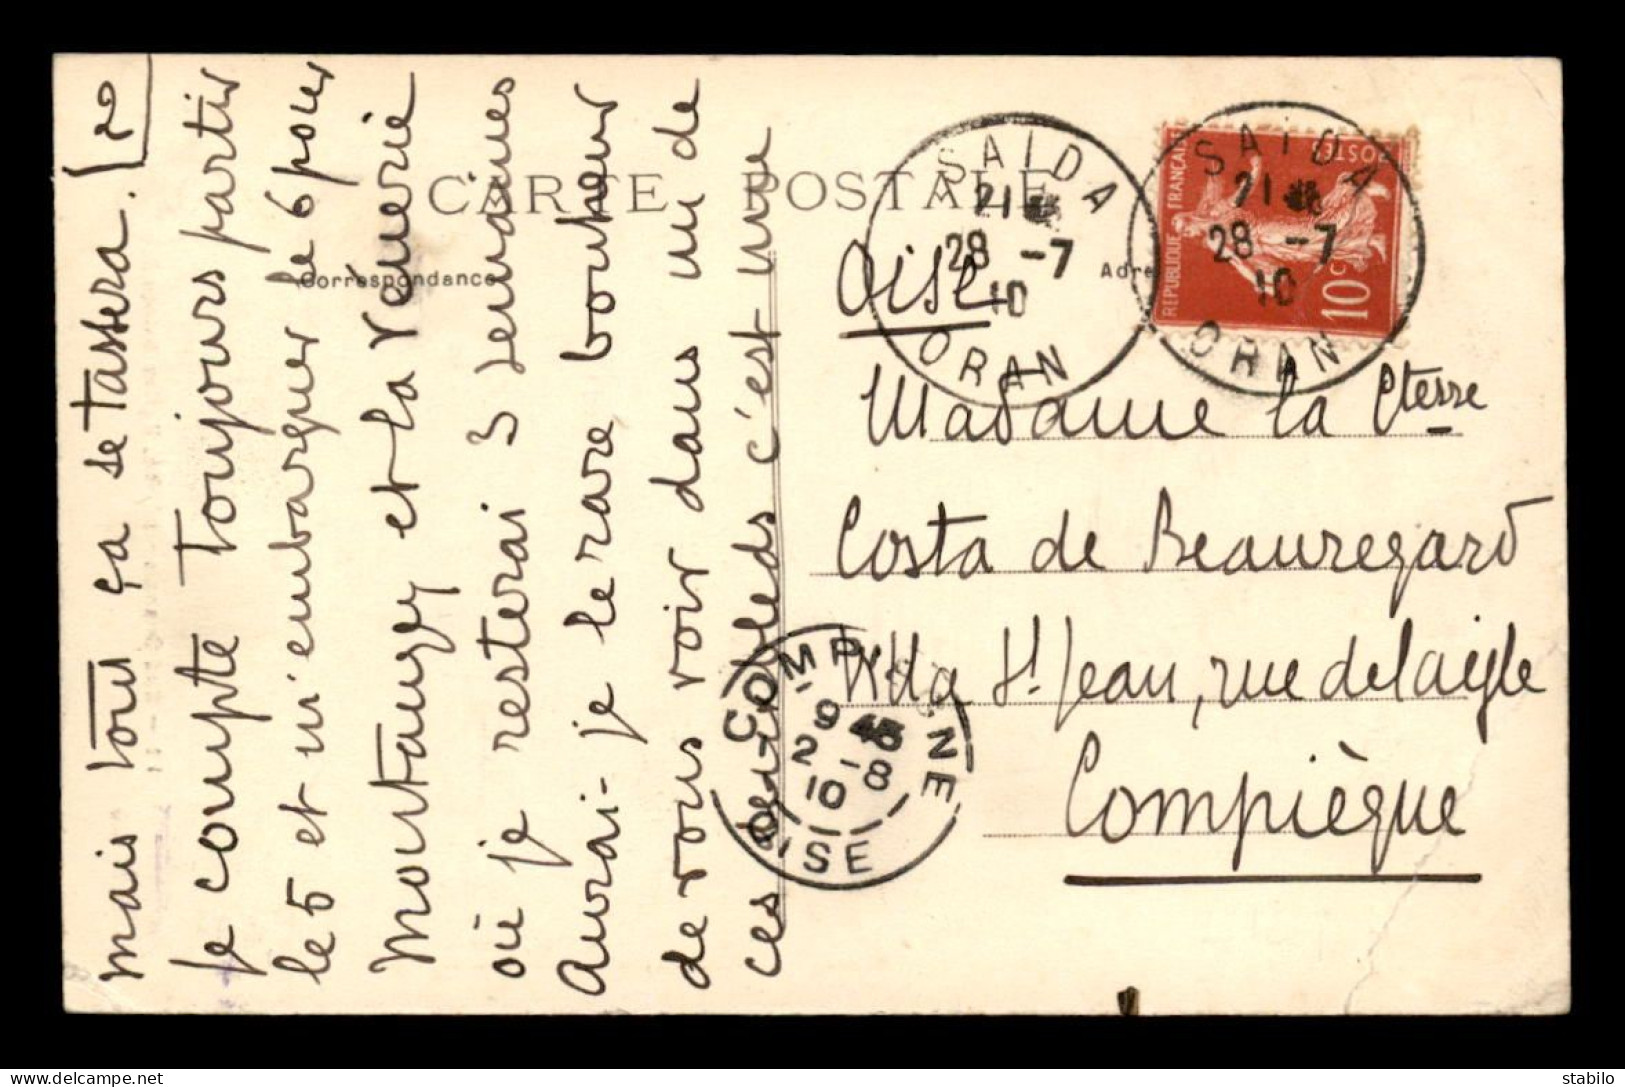 2)
mais tout ça se tassera.
Je compte toujours partir
le 5 et m'embarquer le 6 pour
Montauzey et la Vénerie
où je resterai 3 semaines
Aurai-je le rare bonheur
de vous voir dans un de
ces patelins c'est une
CARTE POSTALE
Correspondance
Adre
REPUBLIQUE FRANÇAISE
POSTES
10c
SAIDA
21
28 -7
10
ORAN
SAIDA
21
28 -7
10
ORAN
Oise
Madame la Ctesse
Costa de Beauregard
Villa St Jean, rue de l'aigle
Compiègne
COMPIEGNE
9 45
2 -8
10
OISE
stabilo Delcampe.net